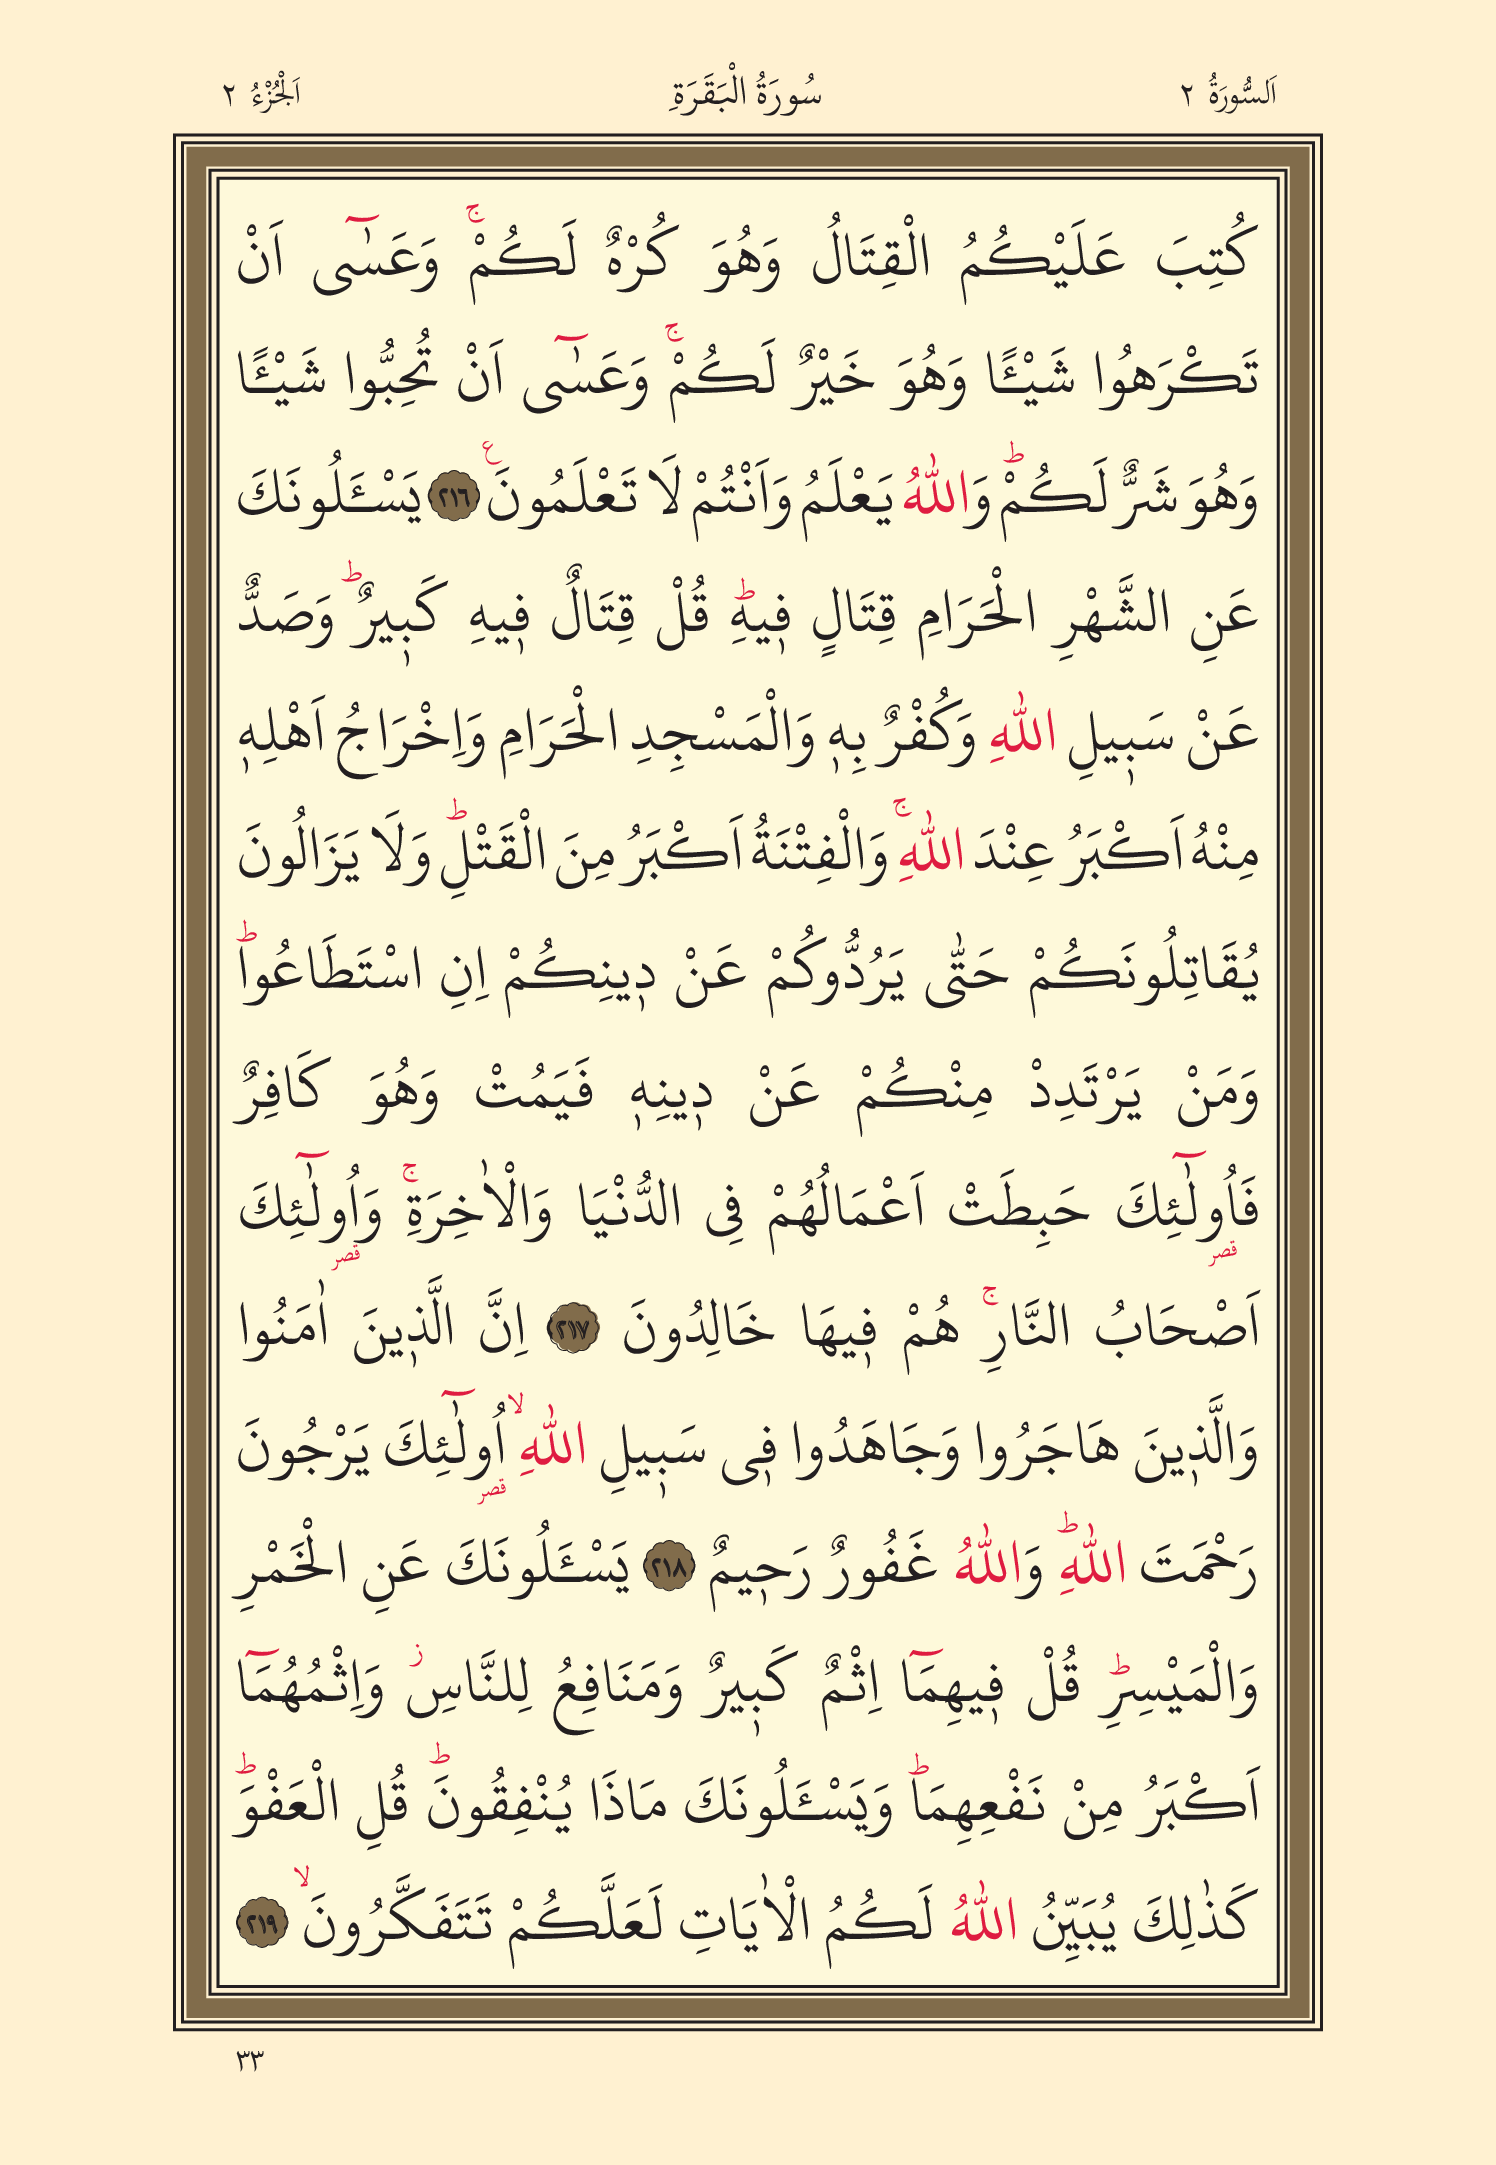 اَلسُّورَةُ ٢ سُورَةُ الْبَقَرَةِ اَلْجُزْءُ ٢
كُتِبَ عَلَيْكُمُ الْقِتَالُ وَهُوَ كُرْهٌ لَكُمْۚ وَعَسٰٓى اَنْ
تَكْرَهُوا شَيْـًٔا وَهُوَ خَيْرٌ لَكُمْۚ وَعَسٰٓى اَنْ تُحِبُّوا شَيْـًٔا
وَهُوَ شَرٌّ لَكُمْؕ وَاللّٰهُ يَعْلَمُ وَاَنْتُمْ لَا تَعْلَمُونَ ع ٢١٦ يَسْـَٔلُونَكَ
عَنِ الشَّهْرِ الْحَرَامِ قِتَالٍ ف۪يهِؕ قُلْ قِتَالٌ ف۪يهِ كَب۪يرٌؕ وَصَدٌّ
عَنْ سَب۪يلِ اللّٰهِ وَكُفْرٌ بِه۪ وَالْمَسْجِدِ الْحَرَامِ وَاِخْرَاجُ اَهْلِه۪
مِنْهُ اَكْبَرُ عِنْدَ اللّٰهِۚ وَالْفِتْنَةُ اَكْبَرُ مِنَ الْقَتْلِؕ وَلَا يَزَالُونَ
يُقَاتِلُونَكُمْ حَتّٰى يَرُدُّوكُمْ عَنْ د۪ينِكُمْ اِنِ اسْتَطَاعُواؕ
وَمَنْ يَرْتَدِدْ مِنْكُمْ عَنْ د۪ينِه۪ فَيَمُتْ وَهُوَ كَافِرٌ
فَاُو۬لٰٓئِكَ قصر حَبِطَتْ اَعْمَالُهُمْ فِى الدُّنْيَا وَالْاٰخِرَةِۚ وَاُو۬لٰٓئِكَ قصر
اَصْحَابُ النَّارِۚ هُمْ ف۪يهَا خَالِدُونَ ٢١٧ اِنَّ الَّذ۪ينَ اٰمَنُوا
وَالَّذ۪ينَ هَاجَرُوا وَجَاهَدُوا ف۪ى سَب۪يلِ اللّٰهِۙ اُو۬لٰٓئِكَ قصر يَرْجُونَ
رَحْمَتَ اللّٰهِؕ وَاللّٰهُ غَفُورٌ رَح۪يمٌ ٢١٨ يَسْـَٔلُونَكَ عَنِ الْخَمْرِ
وَالْمَيْسِرِؕ قُلْ ف۪يهِمَٓا اِثْمٌ كَب۪يرٌ وَمَنَافِعُ لِلنَّاسِ ز وَاِثْمُهُمَٓا
اَكْبَرُ مِنْ نَفْعِهِمَاؕ وَيَسْـَٔلُونَكَ مَاذَا يُنْفِقُونَؕ قُلِ الْعَفْوَؕ
كَذٰلِكَ يُبَيِّنُ اللّٰهُ لَكُمُ الْاٰيَاتِ لَعَلَّكُمْ تَتَفَكَّرُونَۙ ٢١٩
٣٣